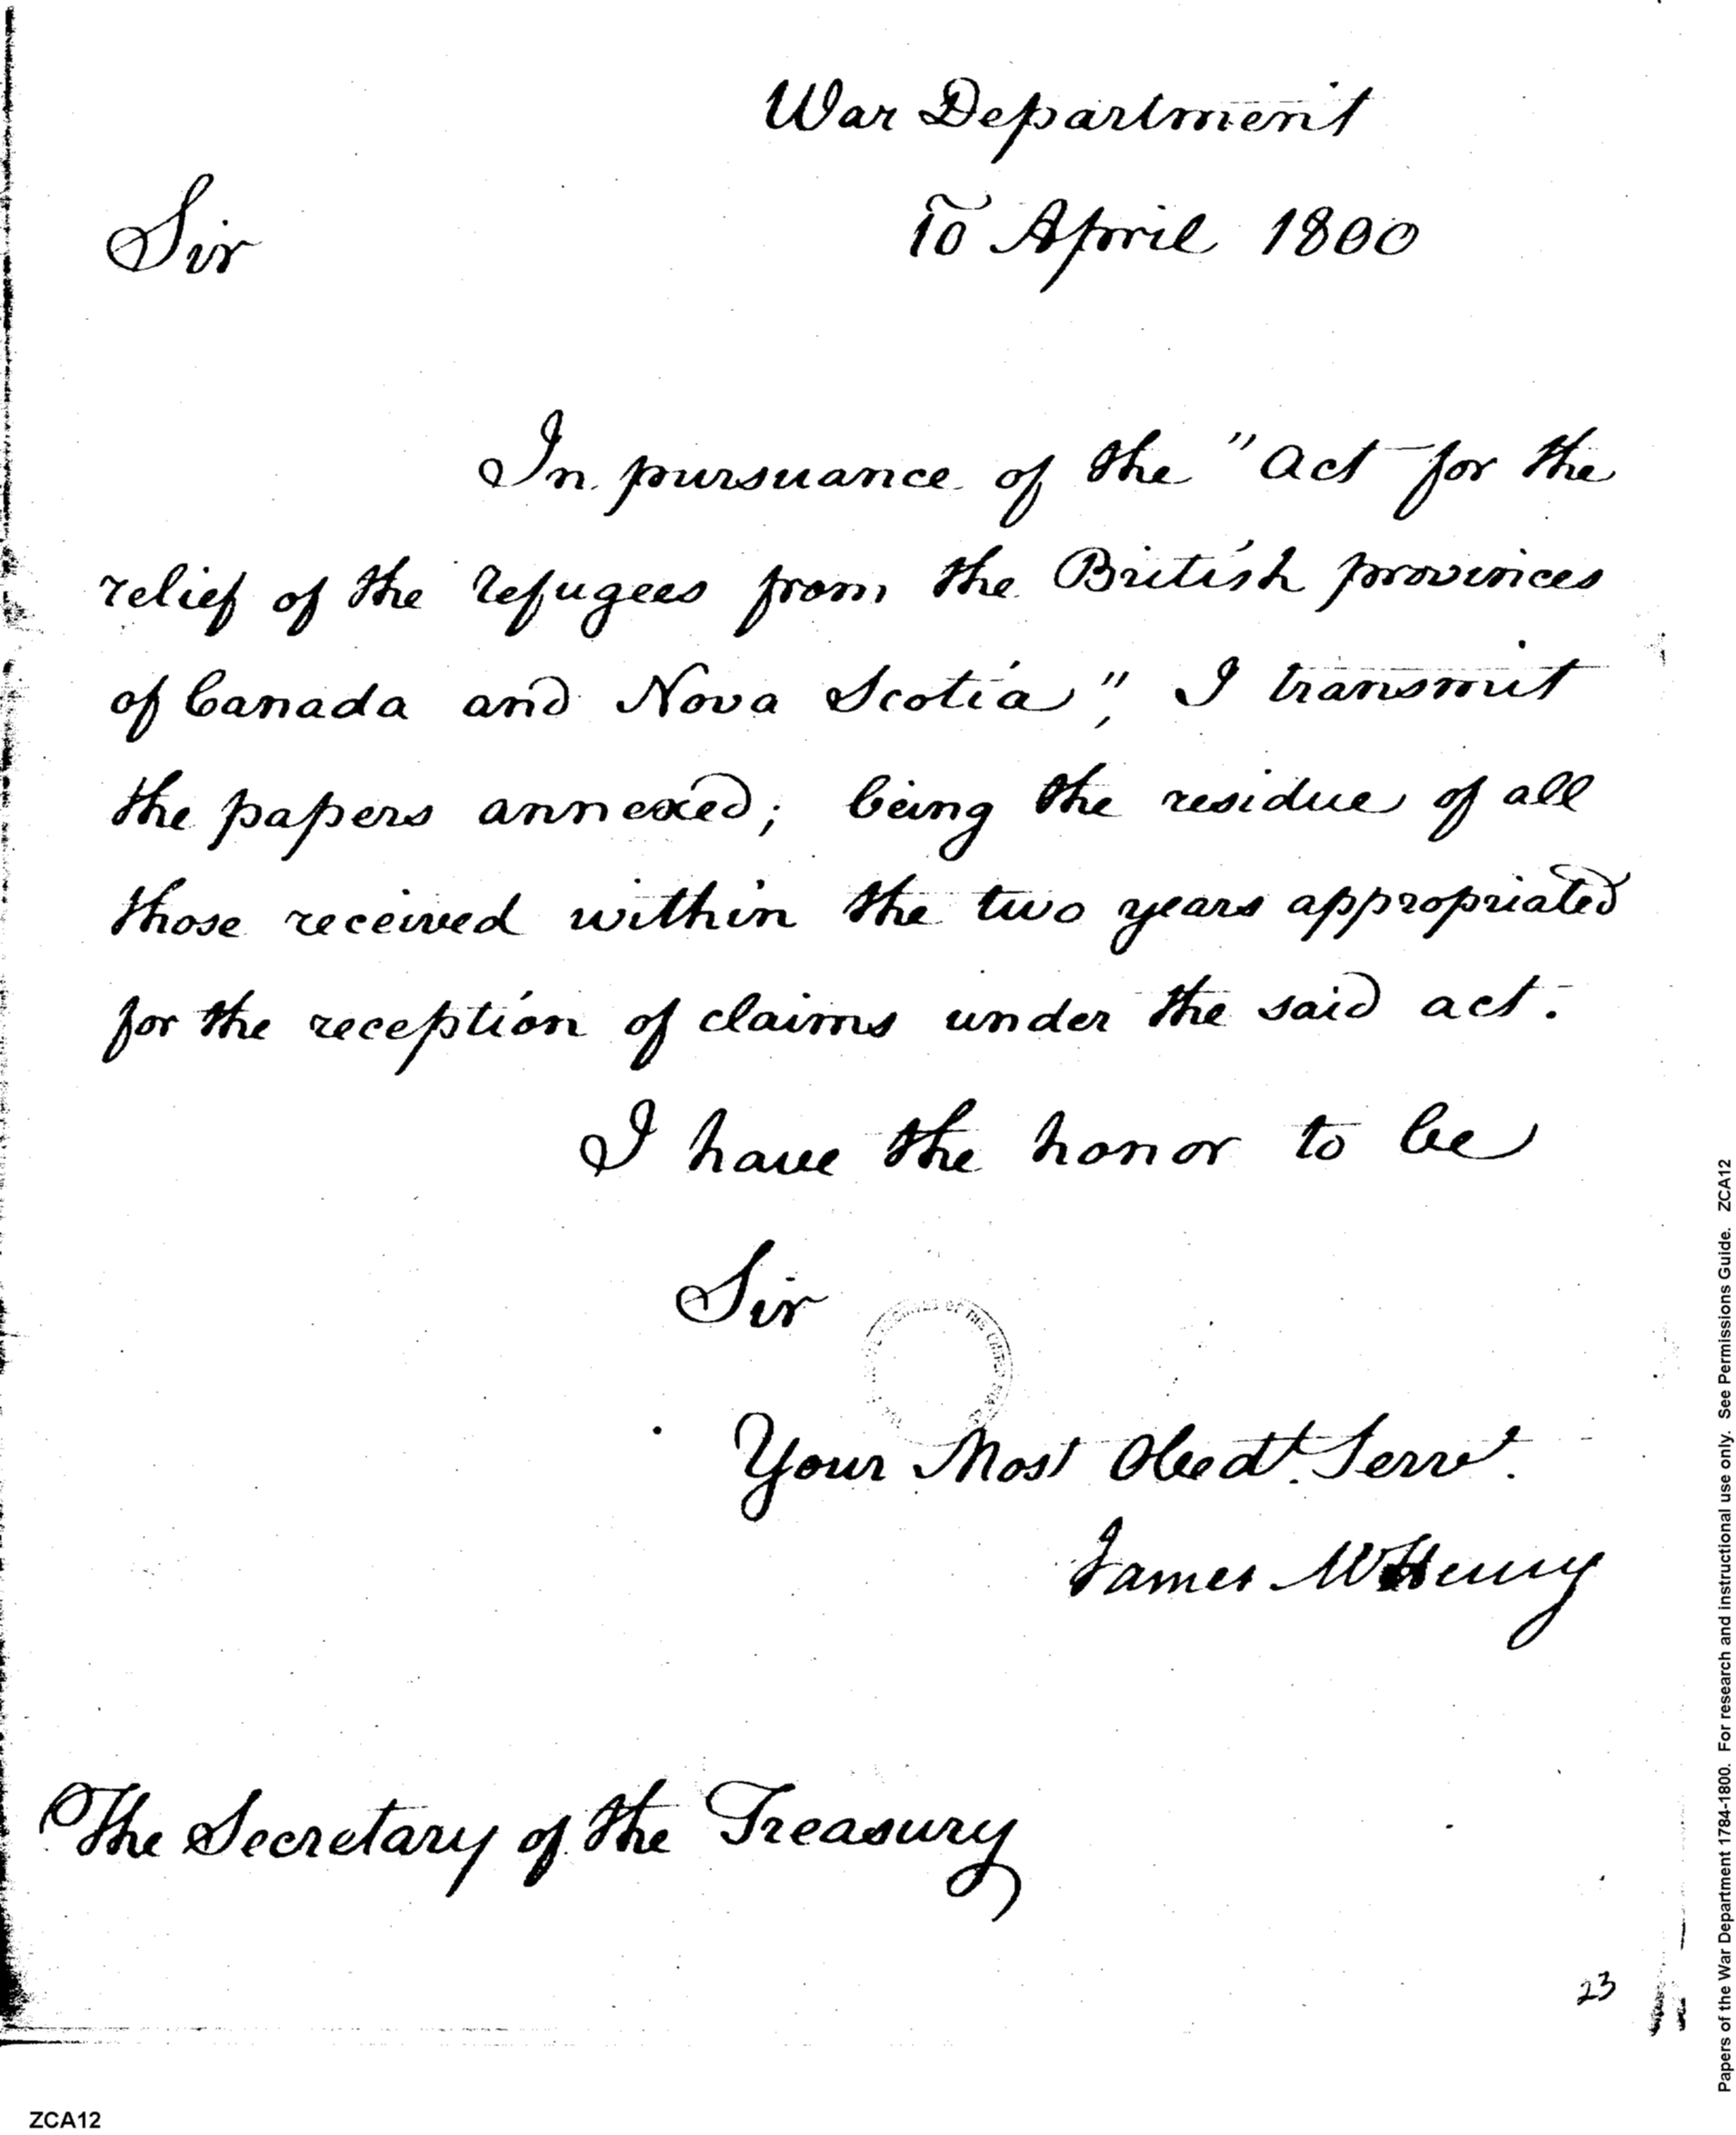 War Department
10 April 1800
Sir
In pursuance of the "Act for the
relief of the refugees from the British provinces
of Canada and Nova Scotia", I transmit
the papers annexed; being the residue of all
those received within the two years appropriated
for the reception of claims under the said act.
I have the honor to be
Sir
OF THE UNITED
Your Most Obedt. Servt.
James McHenry
The Secretary of the Treasury
23
ZCA12
Papers of the War Department 1784-1800. For research and instructional use only. See Permissions Guide. ZCA12